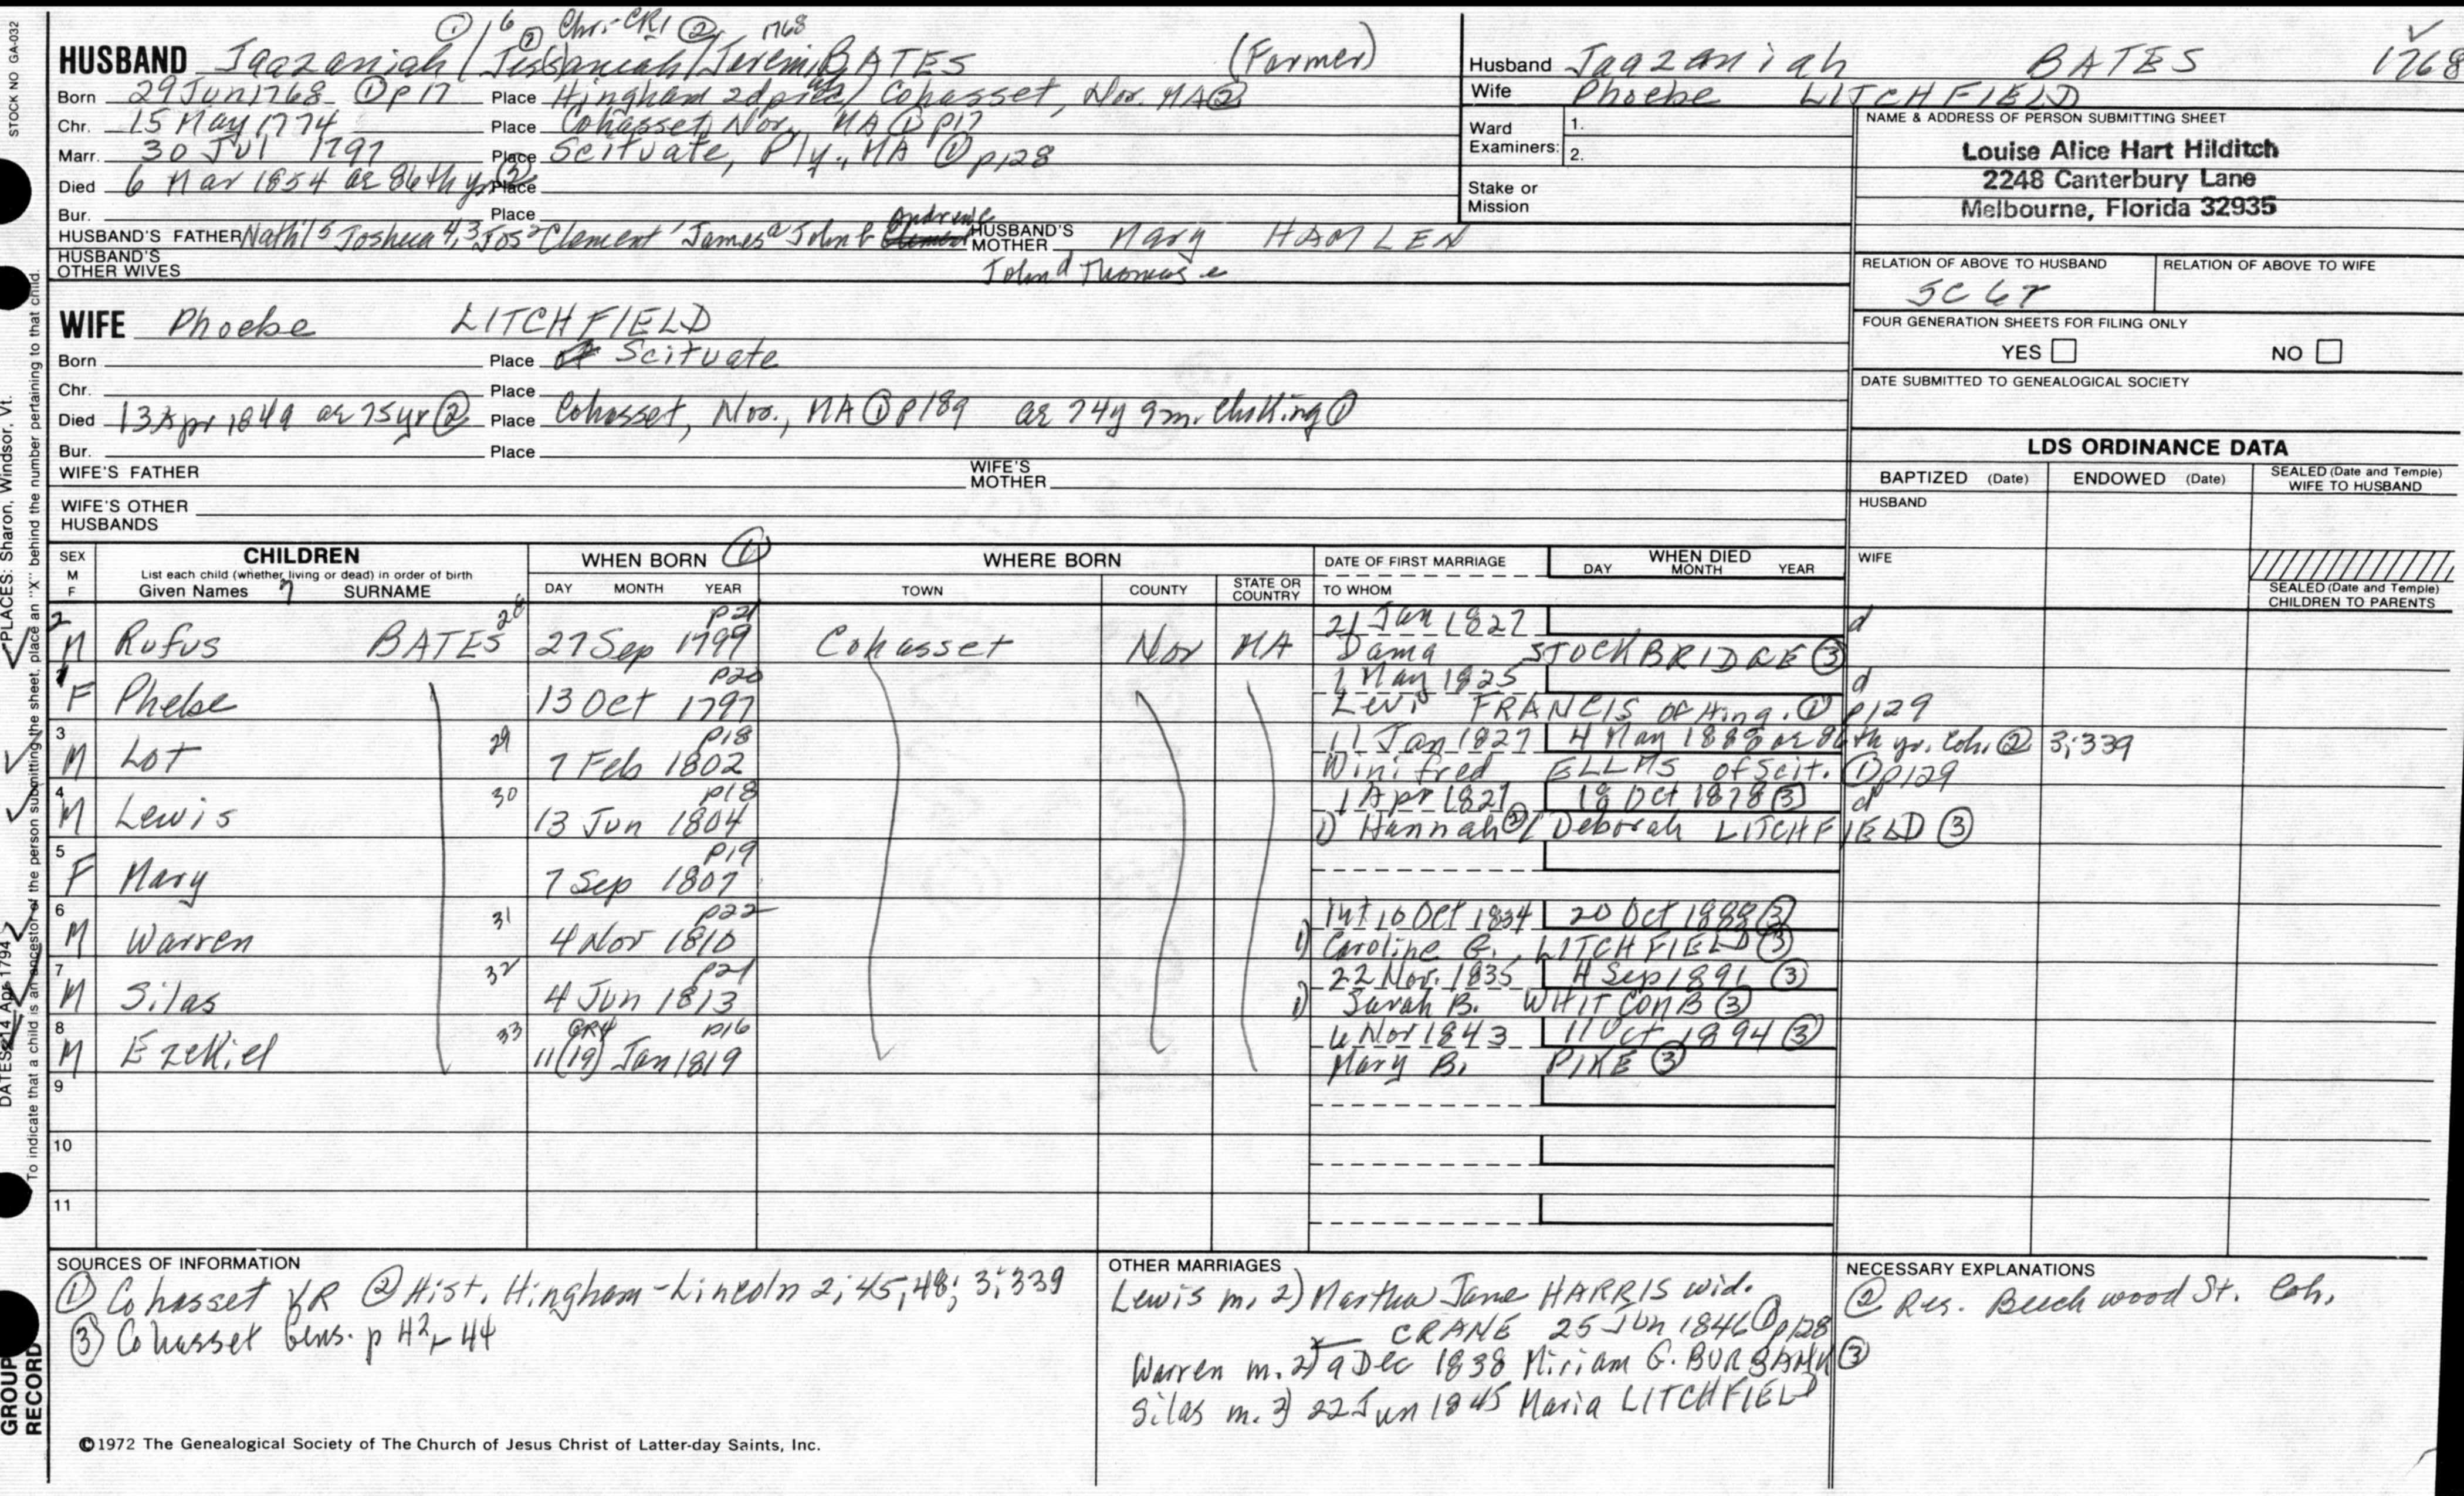 STOCK NO GA-032
① 6 ② Chr.-CR1 ② 1768
HUSBAND Jaazaniah / Jessaniah / Jeremiah BATES (Farmer)
Born 29 Jun 1768 ① p17 Place Hingham 2d prec / Cohasset, Nor. MA ②
Chr. 15 May 1774 Place Cohasset, Nor., MA ① p17
Marr. 30 Jul 1797 Place Scituate, Ply., MA ① p128
Died 6 Mar 1854 ae 86th yr ② Place
Bur. Place
HUSBAND'S FATHER Nath'l 5 Joshua 4,3 Jos 2 Clement 1 James a John b Andrew c HUSBAND'S MOTHER Mary HAMLEN
HUSBAND'S OTHER WIVES John d Thomas e
Husband Jaazaniah BATES 1768
Wife Phoebe LITCHFIELD
Ward Examiners: 1.
2.
Stake or Mission
NAME & ADDRESS OF PERSON SUBMITTING SHEET
Louise Alice Hart Hilditch
2248 Canterbury Lane
Melbourne, Florida 32935
RELATION OF ABOVE TO HUSBAND RELATION OF ABOVE TO WIFE
5C 6r
FOUR GENERATION SHEETS FOR FILING ONLY
YES NO
DATE SUBMITTED TO GENEALOGICAL SOCIETY
WIFE Phoebe LITCHFIELD
Born Place of Scituate
Chr. Place
Died 13 Apr 1849 ae 75yr ② Place Cohasset, Nor., MA ① p189 ae 74y 9m. ①
Bur. Place
WIFE'S FATHER WIFE'S MOTHER
WIFE'S OTHER HUSBANDS
LDS ORDINANCE DATA
BAPTIZED (Date) ENDOWED (Date) SEALED (Date and Temple) WIFE TO HUSBAND
HUSBAND
WIFE
SEALED (Date and Temple) CHILDREN TO PARENTS
SEX M F CHILDREN WHEN BORN ① WHERE BORN DATE OF FIRST MARRIAGE WHEN DIED
List each child (whether living or dead) in order of birth DAY MONTH YEAR
Given Names 7 SURNAME DAY MONTH YEAR TOWN COUNTY STATE OR COUNTRY TO WHOM
2 28 p21 21 Jan 1827 d
M Rufus BATES 27 Sep 1799 Cohasset Nor MA Dama STOCKBRIDGE ③
1 p20 1 May 1825 d
F Phebe 13 Oct 1797 Levi FRANCIS of Hing. ① p129
3 29 p18 11 Jan 1827 4 May 1888 ae 86th yr. Coh. ② 3;339
M Lot 7 Feb 1802 Winifred ELLMS of Scit. ① p129
4 30 p18 1 Apr 1827 18 Oct 1878 ③ d
M Lewis 13 Jun 1804 1) Hannah ② / Deborah LITCHFIELD ③
5 p19
F Mary 7 Sep 1807
6 31 p22 Int 10 Oct 1834 20 Oct 1888 ③
M Warren 4 Nov 1810 1) Caroline G. LITCHFIELD ③
7 32 p21 22 Nov. 1835 4 Sep 1891 ③
M Silas 4 Jun 1813 1) Sarah B. WHITCOMB ③
8 33 GR4 p16 6 Nov 1843 11 Oct 1894 ③
M Ezekiel 11(19) Jan 1819 Mary B. PIKE ③
9
10
11
SOURCES OF INFORMATION
① Cohasset VR ② Hist. Hingham-Lincoln 2;45,48; 3;339
③ Cohasset Gens. p 42, 44
©1972 The Genealogical Society of The Church of Jesus Christ of Latter-day Saints, Inc.
OTHER MARRIAGES
Lewis m. 2) Martha Jane HARRIS wid.
CRANE 25 Jun 1846 ① p128
Warren m. 2) 9 Dec 1838 Miriam G. BURBANK ③
Silas m. 2) 22 Jun 1845 Maria LITCHFIELD
NECESSARY EXPLANATIONS
② Res. Beechwood St. Coh.
PLACES: Sharon, Windsor, Vt.
DATES: 14 Apr 1794
To indicate that a child is an ancestor of the person submitting the sheet, place an "X" behind the number pertaining to that child.
GROUP RECORD